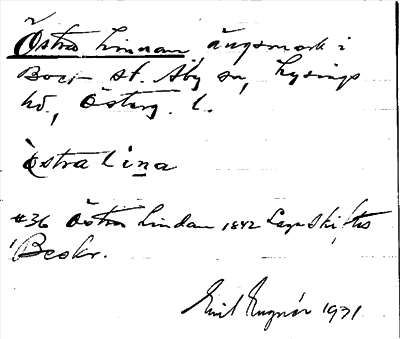 Östra Lindan, ängsmark i
Boet st. Åby sn, Lysings
hd, Österg. l.
Östra Lina
#36 Östra Lindan 1842 Laga Skiftes
Beskr.
Emil 1931